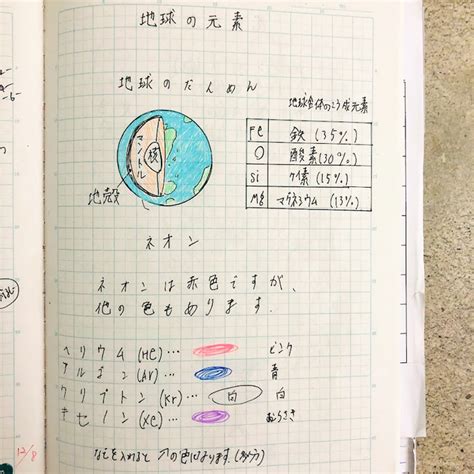 地球の元素
地球のだんめん
地球全体のこう成元素
マントル
核
地殻
Fe 鉄 (35%)
O 酸素 (30%)
Si ケイ素 (15%)
Mg マグネシウム (13%)
ネオン
ネオンは赤色ですが、
他の色もあります。
ヘリウム (He) … ピンク
アルゴン (Ar) … 青
クリプトン (Kr) … 白 白
キセノン (Xe) … むらさき
などを入れると の色になります。
12/8